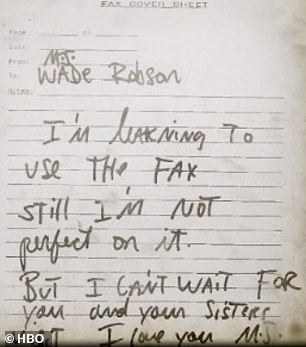 FAX COVER SHEET
Page of:
Date:
From: M.J.
To: WADE RoBSoN
Notes:
I'm leaRning To
USE THE FAX
still I'm NOT
perfect on it.
BuT I CAN'T WAIT FOR
you and your SisTers
I love you M.J.
© HBO